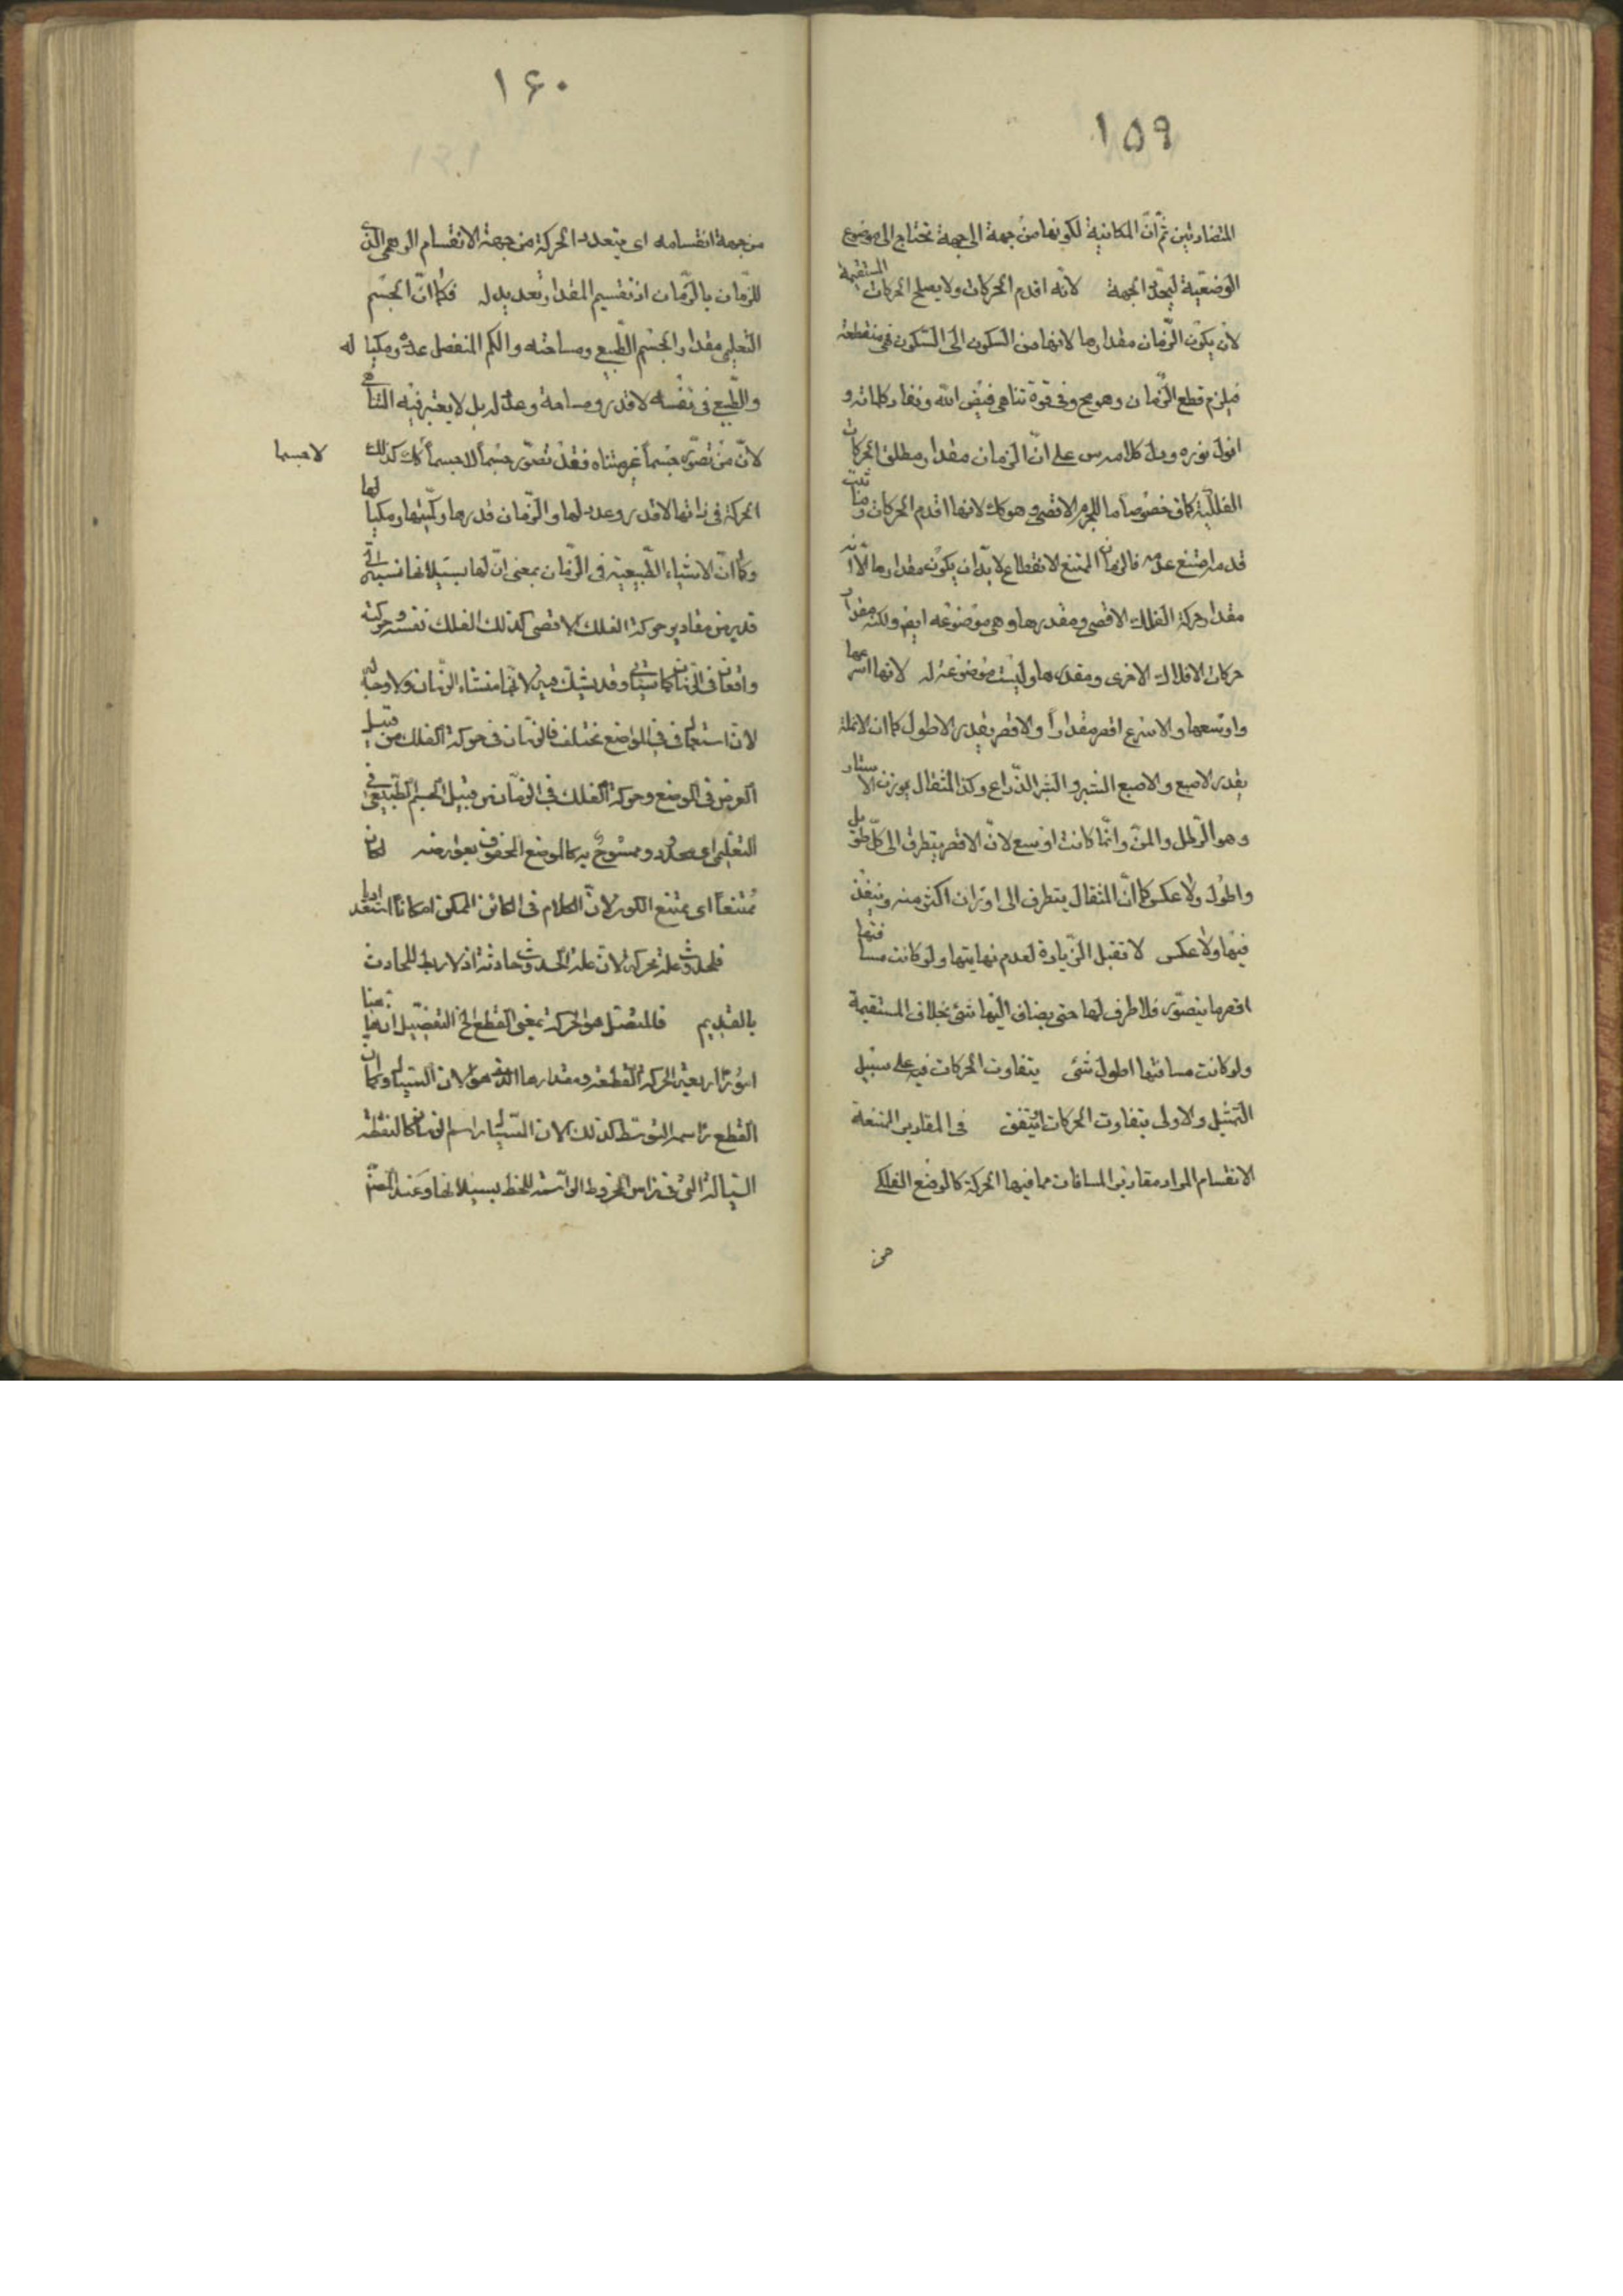 ١۵٩
المتضادتين ثمّ انّ المكانية لكونها من جهة الى جهة تحتاج الى موضوع
الوضعيّة ليحدّد الجهة لانّه اقدم الحركات ولا يصلح الحركات المستقيمة
لان يكون الزّمان مقدارها لانها من السكون الى السّكون فهى منقطعة
فيلزم قطع الزّمان وهو مح وفى قوة تناهى فيض الله ونفاد كلماته و
افول نوره ودلّ كلامه س على انّ الزمان مقدار مطلق الحركات
الفلكيّة كاف خصوصاً ما للجرم الاقصى وهو كك لانها اقدم الحركات وما ثبت
قدمه امتنع عدمه فالزمان الممتنع الانقطاع لا بدّ ان يكون مقدارها الّا انه
مقدار حركة الفلك الاقصى ومقدرها وهى موضوعه ايضا ولكنه مقدار
حركات الافلاك الاخرى ومقدرها وليست موضوعة له لانها اسرعها
واوسعها والاسرع اقصر مقداراً والاقصر يقدر الاطول كما ان الانملة
يقدر الاصبع والاصبع الشبر والشبر الذّراع وكذا المثقال يوزن الاستار
وهو الرّطل والمنّ وانّما كانت اوسع لانّ الاقصر يتطرق الى كلّ طويل
واطول ولا عكس كما انّ المثقال يتطرق الى اوزان اكثر منه وينفذ
فيها ولا عكس لا تقبل الزّيادة لعدم نهايتها ولو كانت مسافتها
اقصر ما يتصوّر فلا طرف لها حتى يضاف اليها شئ بخلاف المستقيمة
ولو كانت مسافتها اطول شئ يتفاوت الحركات فيه على سبيل
التّمثيل والاولى يتفاوت الحركات او يتفق فى المقادير الممتنعة
الانقسام المراد مقادير المسافات مما فيها الحركة كالوضع الفلكى
من
١۶٠
من جهة انقسامه اى يتعدد الحركة من جهة الانقسام الوهمى الذى
للزّمان بالزّمان اذ تقسيم المقدار تعديد له فكما انّ الجسم
التّعليمى مقدار الجسم الطّبيعى ومساحته والكم المنفصل عدده ومكيا له
والطّبيعى فى نفسه لا قدر ومساحة وعدد له بل لا يعتبر فيه التناهى
لانّ من تصوّر جسماً غير متناه فقد تصوّر جسماً لا جسماً كك كذلك لا جسما
الحركة فى ذاتها لا قدر وعدد لها والزّمان قدرها وكميّتها ومكيالها
وكما انّ الاشياء الطّبيعية فى الزّمان بمعنى انّ لها بسيلانها نسبة الى
قدر من مقادير حركة الفلك الاقصى كذلك الفلك نفسه وحركته
واقعان فى الزّمان كما سيأتى وقد يشكّك فيه لانّها منشاء الزّمان ولا وجه له
لان استعمال فى فى المواضع مختلف فالزمان فى حركة الفلك من قبيل
العرض فى الموضع وحركة الفلك فى الزّمان من قبيل الجسم الطّبيعى فى
التعليمى اى محدود وممسوح به كالموضع المحفوف بعوارضه لكان
ممتنعاً اى ممتنع الكون لانّ الكلام فى الكائن الممكن امكاناً استعداديا
فلحدوث علة حركة لان علة الحدوث حادثة اذ لا ربط للحادث
بالقديم فالمتصل هو الحركة بمعنى القطع الخ التفصيل ان هيهنا
اموراً اربعة الحركة القطعية ومقدارها الذى هو الان السيال وكما ان
القطع راسمه التوسط كذلك الان السّيال راسم الزمان كالنقطة
السّيالة التى فى راس المخروط الراسمة للخط بسيلانها وعند المصنّف